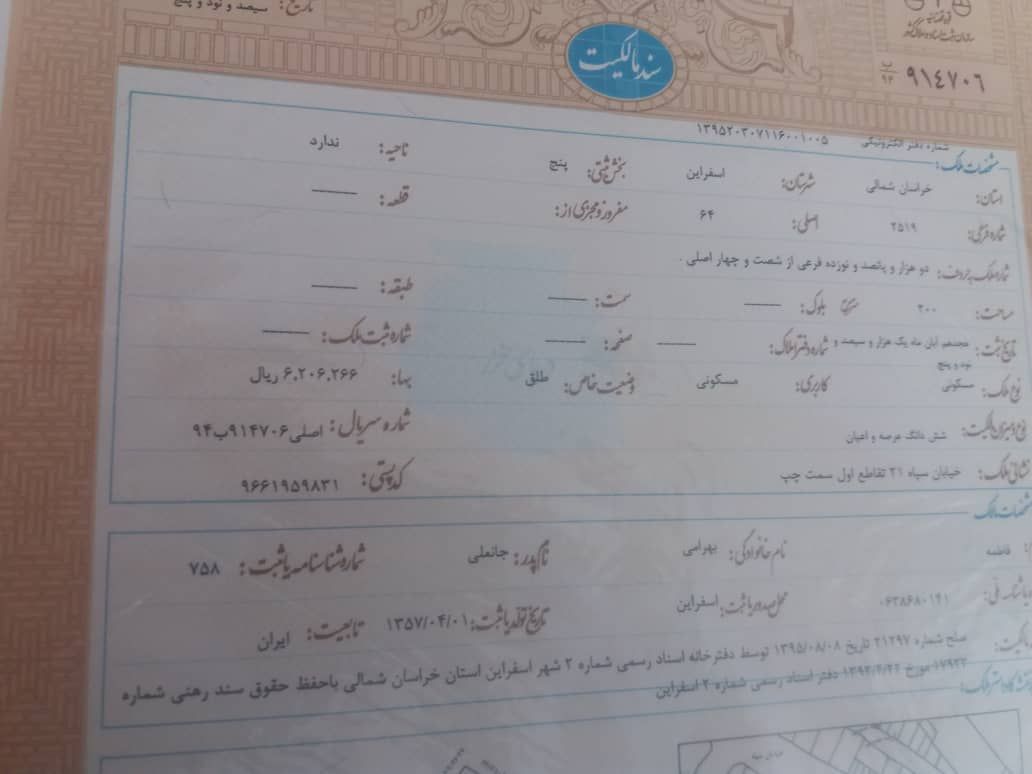 تاریخ: سیصد و نود و پنج
سند مالکیت
ب
۹۴
۹۱۴۷۰۶
شماره دفتر الکترونیکی ۱۳۹۵۲۰۳۰۷۱۱۶۰۰۱۰۰۵
مشخصات ملک:
استان: خراسان شمالی شهرستان: اسفراین بخش ثبتی: پنج ناحیه: ندارد
شماره فرعی: ۲۵۱۹ اصلی: ۶۴ مفروز و مجزی از: قطعه:
شماره ملک به حروف: دو هزار و پانصد و نوزده فرعی از شصت و چهار اصلی .
مساحت: ۲۰۰ بلوک: سمت: طبقه:
تاریخ ثبت: هجدهم آبان ماه یک هزار و سیصد و نود و پنج شماره دفتر املاک: صفحه: شماره ثبت ملک:
نوع ملک: مسکونی کاربری: مسکونی وضعیت خاص: طلق بها: ۶,۲۰۶,۲۶۶ ریال
نوع و میزان مالکیت: شش دانگ عرصه و اعیان شماره سریال: اصلی۹۱۴۷۰۶ب۹۴
نشانی ملک: خیابان سپاه ۲۱ تقاطع اول سمت چپ کدپستی: ۹۶۶۱۹۵۹۸۳۱
مشخصات مالک
فاطمه نام خانوادگی: بهرامی نام پدر: جانعلی شماره شناسنامه یا ثبت: ۷۵۸
۰۶۳۸۶۸۰۱۴۱ محل صدور یا ثبت: اسفراین تاریخ تولد یا ثبت: ۱۳۵۷/۰۴/۰۱ تابعیت: ایران
صلح شماره ۲۱۲۹۷ تاریخ ۱۳۹۵/۰۸/۰۸ توسط دفترخانه اسناد رسمی شماره ۲ شهر اسفراین استان خراسان شمالی باحفظ حقوق سند رهنی شماره
دفتر اسناد رسمی شماره ۲ اسفراین